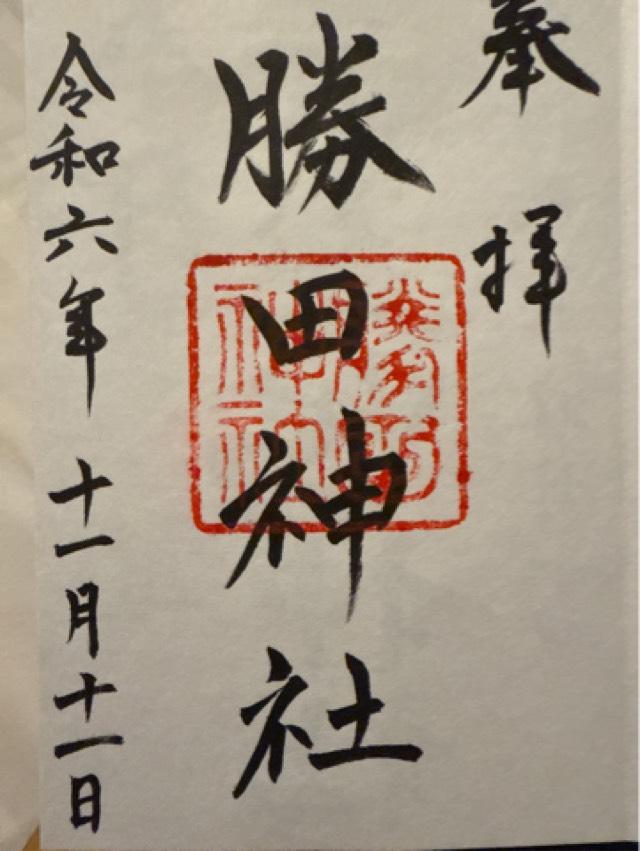 奉拝
勝田神社
令和六年十一月十一日